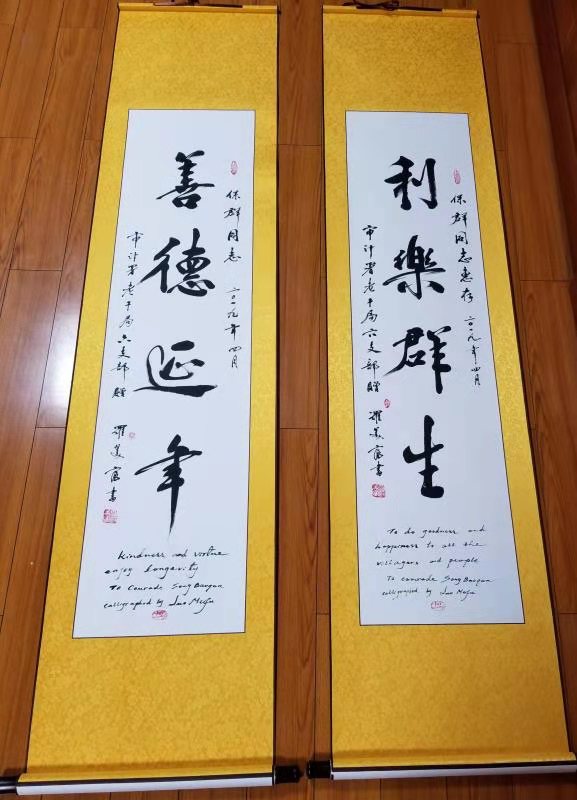 保群同志惠存 二〇一九年四月
利樂群生
审计署老干局六支部赠 羅美富書
To do goodness and
happerness to all the
villagers and people
To comrade Song Baoqun
calligraphed by Luo Meifu
保群同志 二〇一九年四月
善德延年
审计署老干局六支部赠 羅美富書
kindness and virtue
enjoy longevity
To Comrade Song Baoqun
calligraphed by Luo Meifu